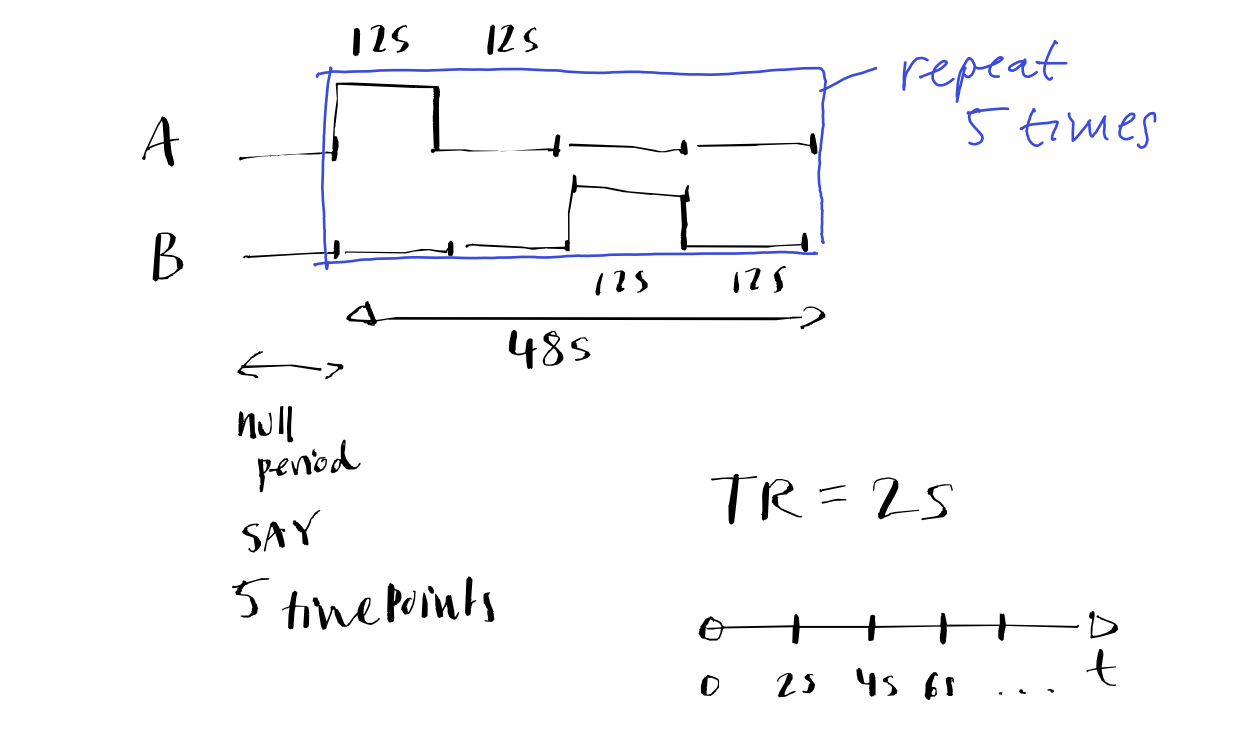 12s 12s
repeat
5 times
A
B
12s 12s
48s
null
period
SAY
5 timepoints
TR = 2s
0 2s 4s 6s ... t